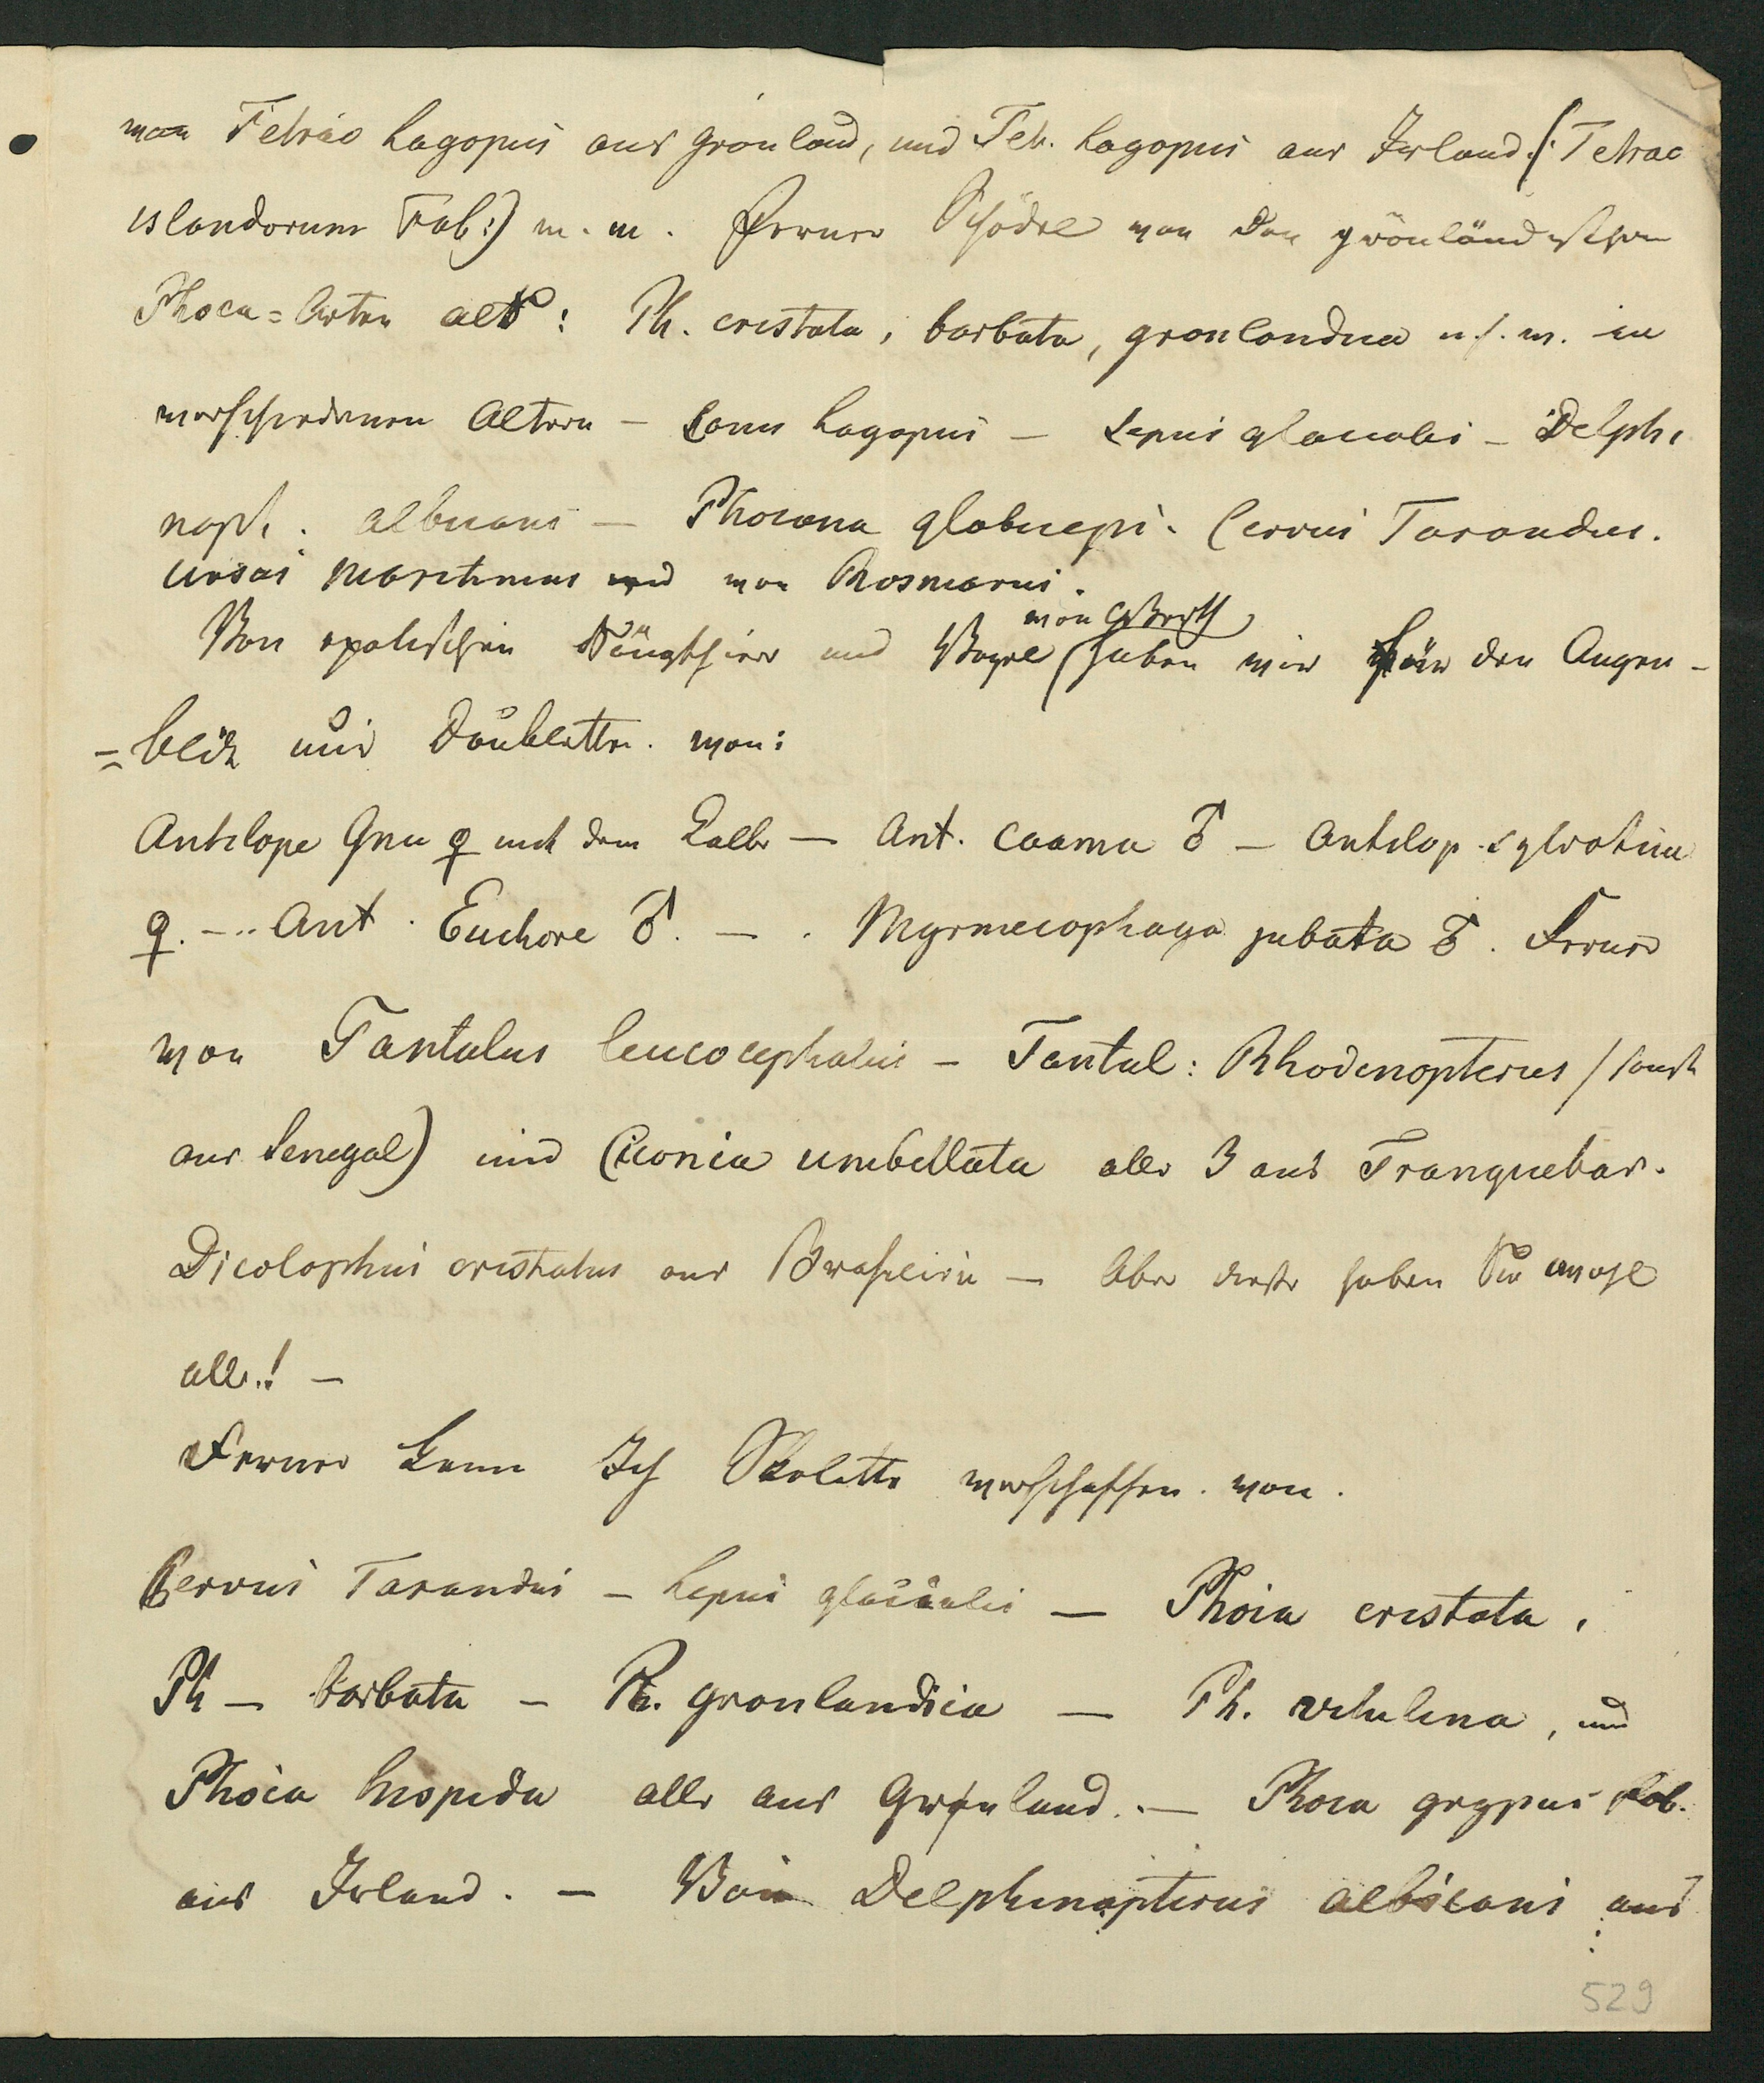 von Tetrao Lagopus aus Grönland, und Tetr. Lagopus aus Island (: Tetrao
islandorum Fab:) m. m. Ferner Schädel von den grönländischen
Phoca=Arten als: Ph. cristata, barbata, gronlandica u. s. w. in
verschiedenen Altern – Canis Lagopus – Lepus glacialis – Delphi
napt. albicans – Phocena globiceps. Cervus Tarandus.
Ursus maritimus und von Rosmarus.
von Werth
Von exotischen Säugthiere und Vogel haben wir für den Augen-
=blick nur Doubletten von:
Antilope Gnu ♀ mit dem Kalbe – Ant. Caama ♂ – Antilop. sylvatica
♀. – Ant. Euchore ♂. – . Myrmecophaga jubata ♂. Ferner
von Tantalus leucocephalus – Tantul: Rhodinopterus / sonst
aus Senegal) und Ciconia umbellata alle 3 aus Tranquebar.
Dicolophus cristatus aus Brasilien – Aber diese haben Sie wohl
alle.! –
Ferner kann Ich Skelette verschaffen von.
Cervus Tarandus – Lepus glacialis – Phoca cristata,
Ph – barbata – Ph. gronlandica – Ph. vitulina, und
Phoca hispida alle aus Grønland. – Phoca grypus Fab.
aus Island. – Von Delphinapterus albicans aus
529